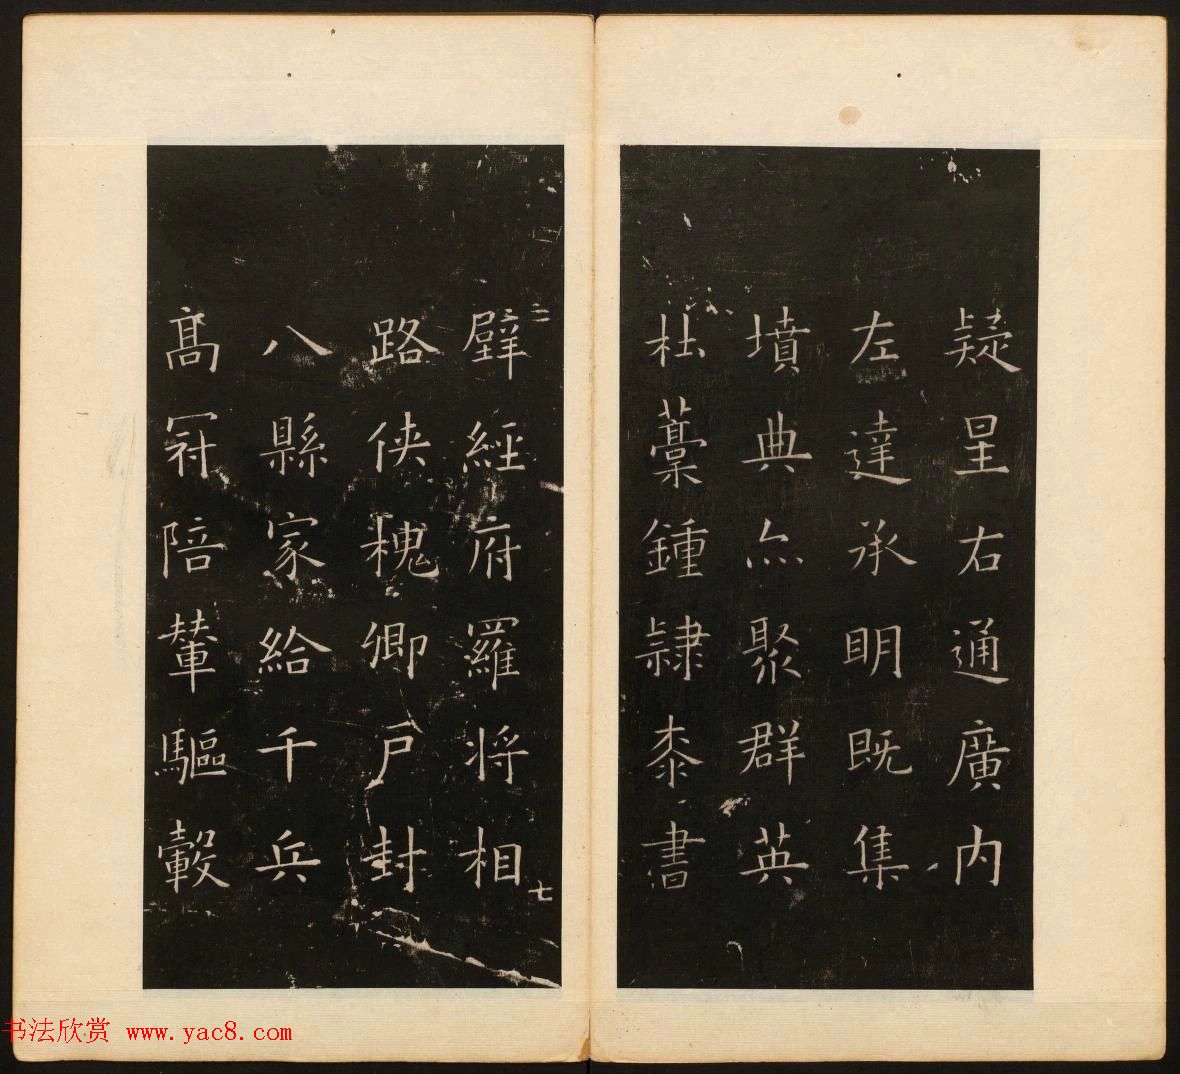 疑星右通廣内
左達承明既集
墳典亦聚群英
杜藁鍾隸桼書
二
壁經府羅将相
七
路俠槐卿户封
八縣家給千兵
髙冠陪輦驅轂
书法欣赏 www.yac8.com